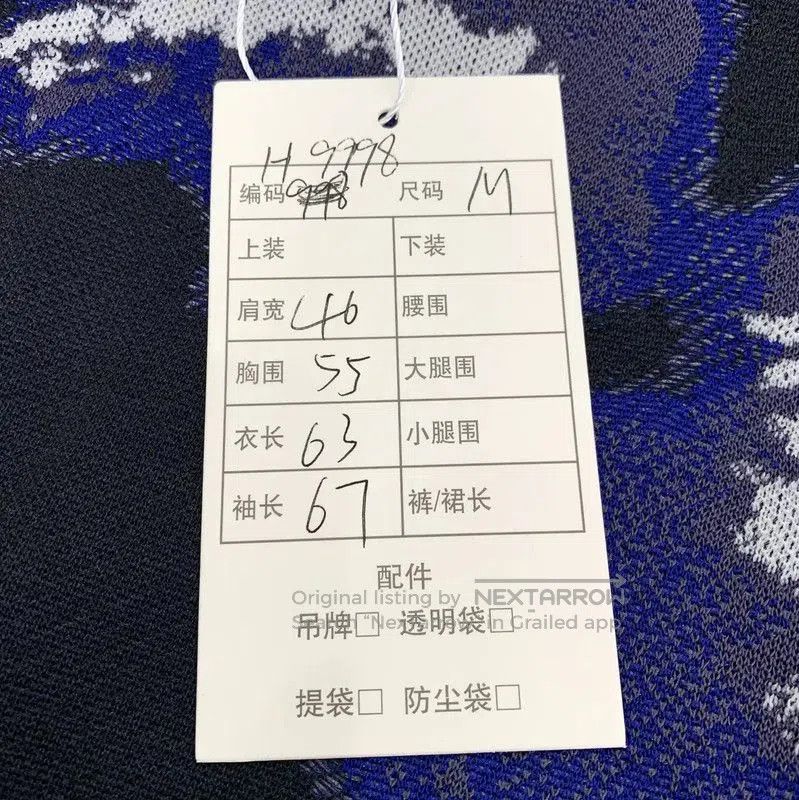 H 9998
编码 998 尺码 M
上装 下装
肩宽 46 腰围
胸围 55 大腿围
衣长 63 小腿围
袖长 67 裤/裙长
配件
Original listing by NEXTARROW
吊牌□ 透明袋□
in Grailed app
提袋□ 防尘袋□